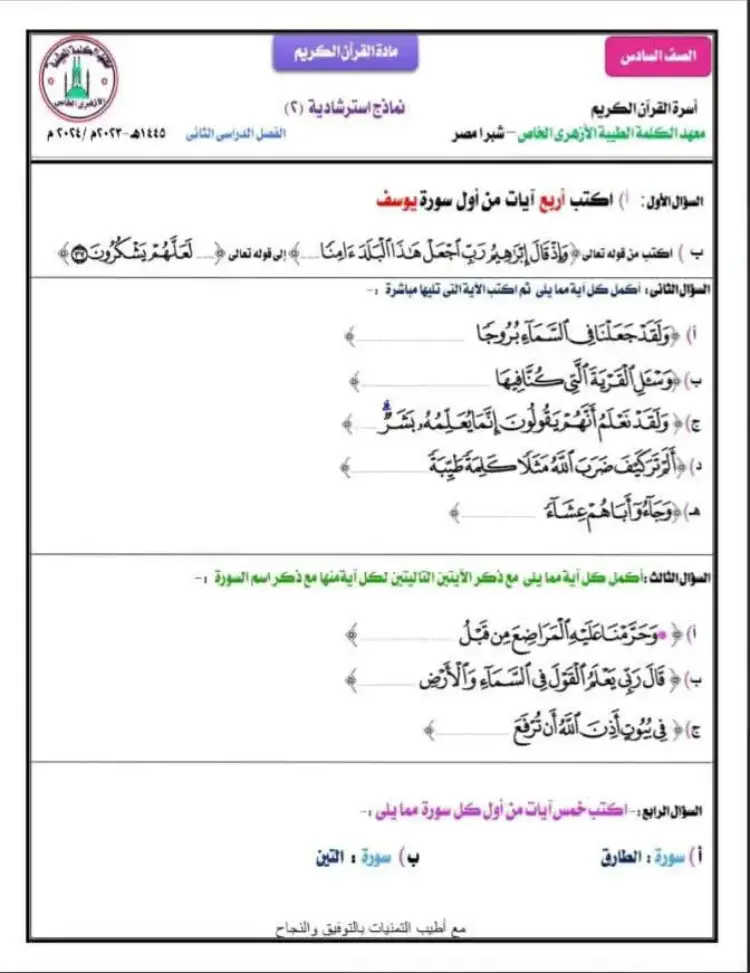 مادة القرآن الكريم
الصف السادس
أسرة القرآن الكريم
نماذج استرشادية (٢)
معهد الكلمة الطيبة الأزهرى الخاص – شبرا مصر
الفصل الدراسى الثانى
١٤٤٥هـ -٢٠٢٣م /٢٠٢٤ م
السؤال الأول: أ) اكتب أربع آيات من أول سورة يوسف
ب ) اكتب من قوله تعالى ﴿وَإِذْ قَالَ إِبْرَٰهِيمُ رَبِّ ٱجْعَلْ هَٰذَا ٱلْبَلَدَ ءَامِنًا .....﴾ إلى قوله تعالى ﴿..... لَعَلَّهُمْ يَشْكُرُونَ ٣٧﴾
السؤال الثانى: أكمل كل آية مما يلى ثم اكتب الآية التى تليها مباشرة :-
أ) ﴿وَلَقَدْ جَعَلْنَا فِى ٱلسَّمَآءِ بُرُوجًا ..........﴾
ب) ﴿وَسْـَٔلِ ٱلْقَرْيَةَ ٱلَّتِى كُنَّا فِيهَا ..........﴾
ج) ﴿وَلَقَدْ نَعْلَمُ أَنَّهُمْ يَقُولُونَ إِنَّمَا يُعَلِّمُهُۥ بَشَرٌ ..........﴾
د) ﴿أَلَمْ تَرَ كَيْفَ ضَرَبَ ٱللَّهُ مَثَلًا كَلِمَةً طَيِّبَةً ..........﴾
هـ) ﴿وَجَآءُوٓ أَبَاهُمْ عِشَآءً ..........﴾
السؤال الثالث :أكمل كل آية مما يلى مع ذكر الآيتين التاليتين لكل آية منها مع ذكر اسم السورة :-
أ) ﴿وَحَرَّمْنَا عَلَيْهِ ٱلْمَرَاضِعَ مِن قَبْلُ ..........﴾
ب) ﴿قَالَ رَبِّى يَعْلَمُ ٱلْقَوْلَ فِى ٱلسَّمَآءِ وَٱلْأَرْضِ ..........﴾
ج) ﴿فِى بُيُوتٍ أَذِنَ ٱللَّهُ أَن تُرْفَعَ ..........﴾
السؤال الرابع :- اكتب خمس آيات من أول كل سورة مما يلى :-
أ) سورة : الطارق
ب) سورة : التين
مع أطيب التمنيات بالتوفيق والنجاح